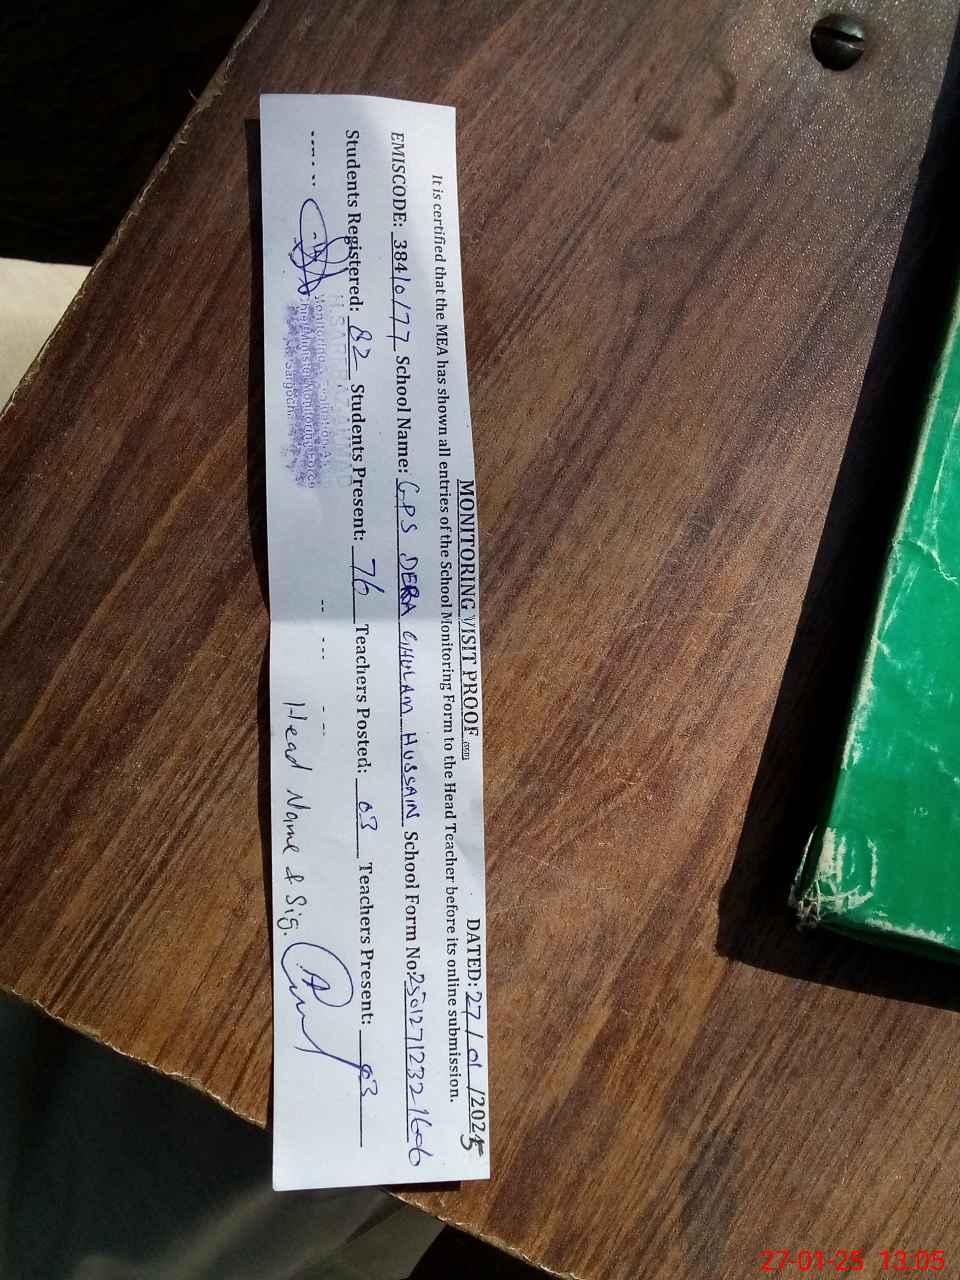 MONITORING VISIT PROOF DATED: 27/01/2025
It is certified that the MEA has shown all entries of the School Monitoring Form to the Head Teacher before its online submission.
EMISCODE: 384/0/77 School Name: GPS DERA GHULAM HUSSAIN School Form No: 250127123321606
Students Registered: 82 Students Present: 76 Teachers Posted: 03 Teachers Present: 03
Monitoring & Evaluation
Chief Minister Monitoring Force
Sargodha
Head Name & Sig.
27-01-25 13:05